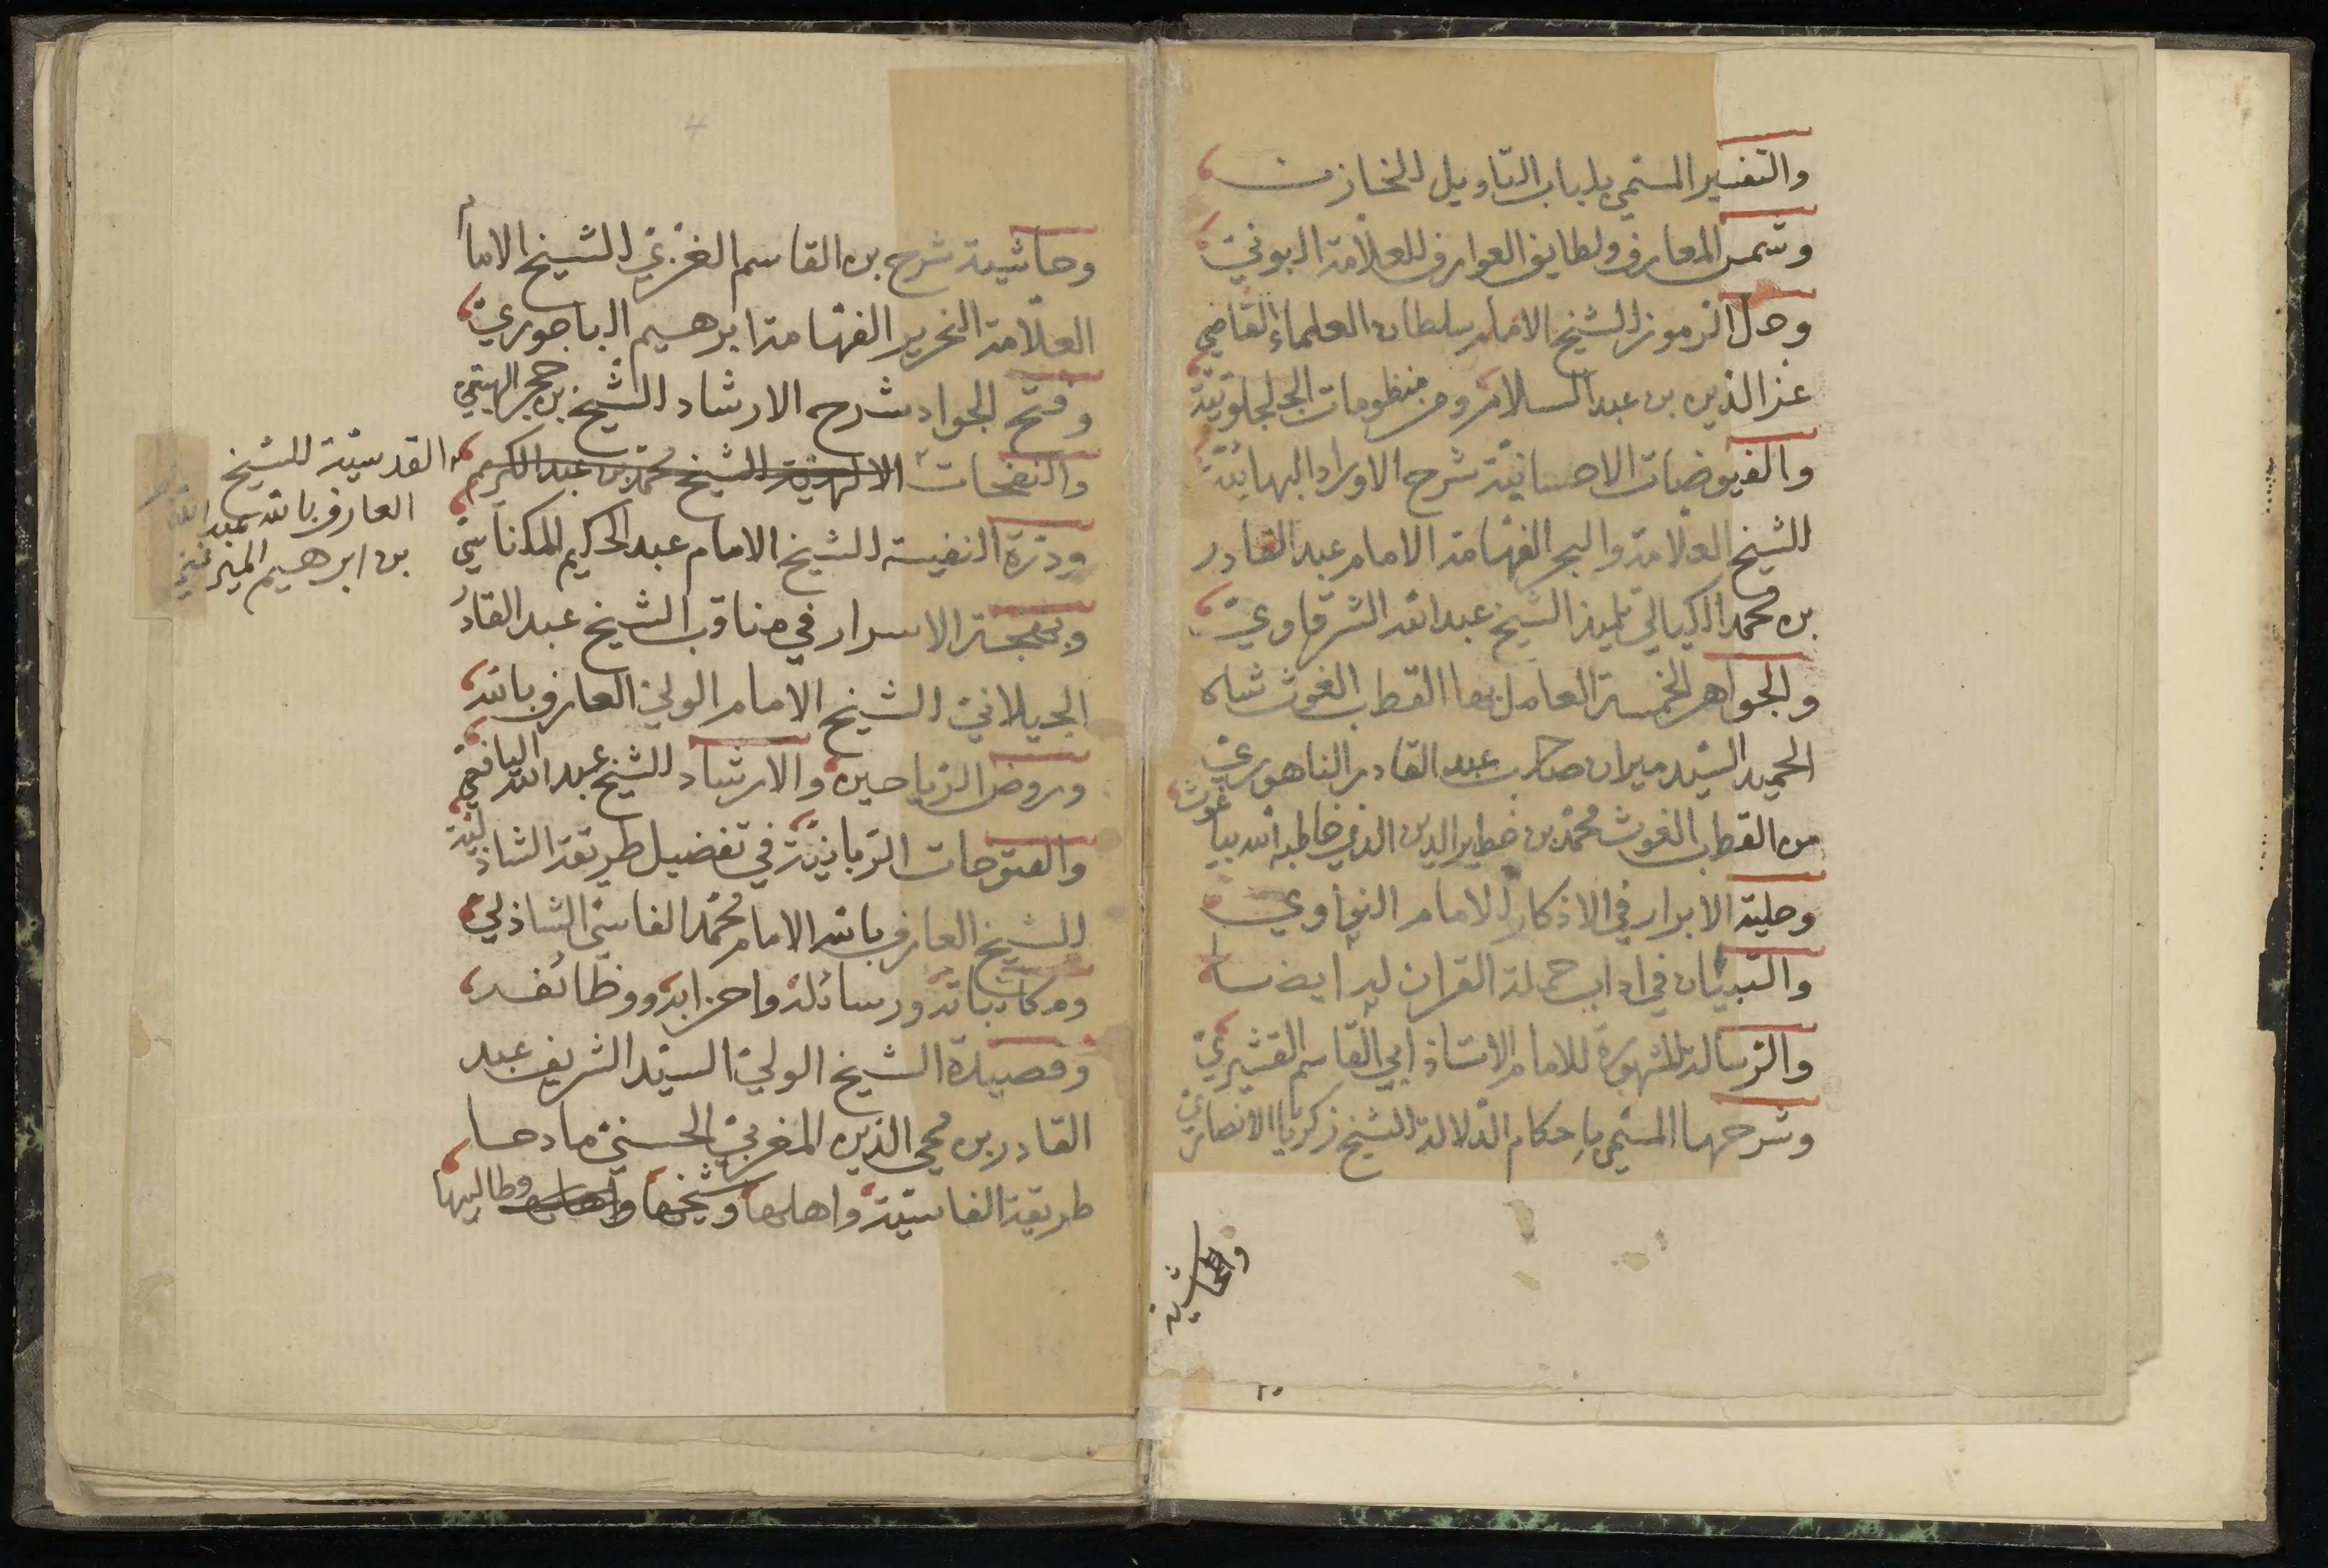 والتفسير المسمي بلباب التاويل للخازن
وشمس المعارف ولطايف العوارف للعلامة البوني
وحل الرموز للشيخ الامام سلطان العلماء القاضي
عز الدين بن عبد السلام ومنظومات الجلجلوتية
والفيوضات الاحسانية شرح الاوراد البهائية
للشيخ العلامة والبحر الفهامة الامام عبد القادر
بن محمد الكيالي تلميذ الشيخ عبد الله الشرقاوي
والجواهر الخمسة العامل بها القطب الغوث شاه
الحميد السيد ميران صاحب عبد القادر الناهوري
من القطب الغوث محمد بن خطير الدين الذي خاطبه الله بيا غوث
وحلية الابرار في الاذكار للامام النواوي
والتبيان في اداب حملة القران له ايضا
والرسالة المشهورة للامام الاستاذ ابي القاسم القشيري
وشرحها المسمي باحكام الدلالة للشيخ زكريا الانصاري
وحاشية
٢٠
4
وحاشية شرح بن القاسم الغزي للشيخ الامام
العلامة النحرير الفهامة ابرهيم الباجوري
وفتح الجواد شرح الارشاد للشيخ بن حجر الهيتمي
والنفحات الالهية للشيخ محمد بن عبد الكريم
القدسية للشيخ
العارف بالله عبد الله
بن ابرهيم الميرغني
ودرة النفيسة للشيخ الامام عبد الحكيم المكناسي
وبهجة الاسرار في مناقب الشيخ عبد القادر
الجيلاني للشيخ الامام الولي العارف بالله
وروض الرياحين والارشاد للشيخ عبد الله اليافعي
والفتوحات الربانية في تفضيل طريقة الشاذلية
للشيخ العارف بالله الامام محمد الفاسي الشاذلي
ومكاتباته ورسائله واحزابه ووظائفه
وقصيدة الشيخ الولي السيد الشريف عبد
القادر بن محي الدين المغربي الحسني مادحا
طريقة الفاسية واهلها وشيخها واهلها وطالبها